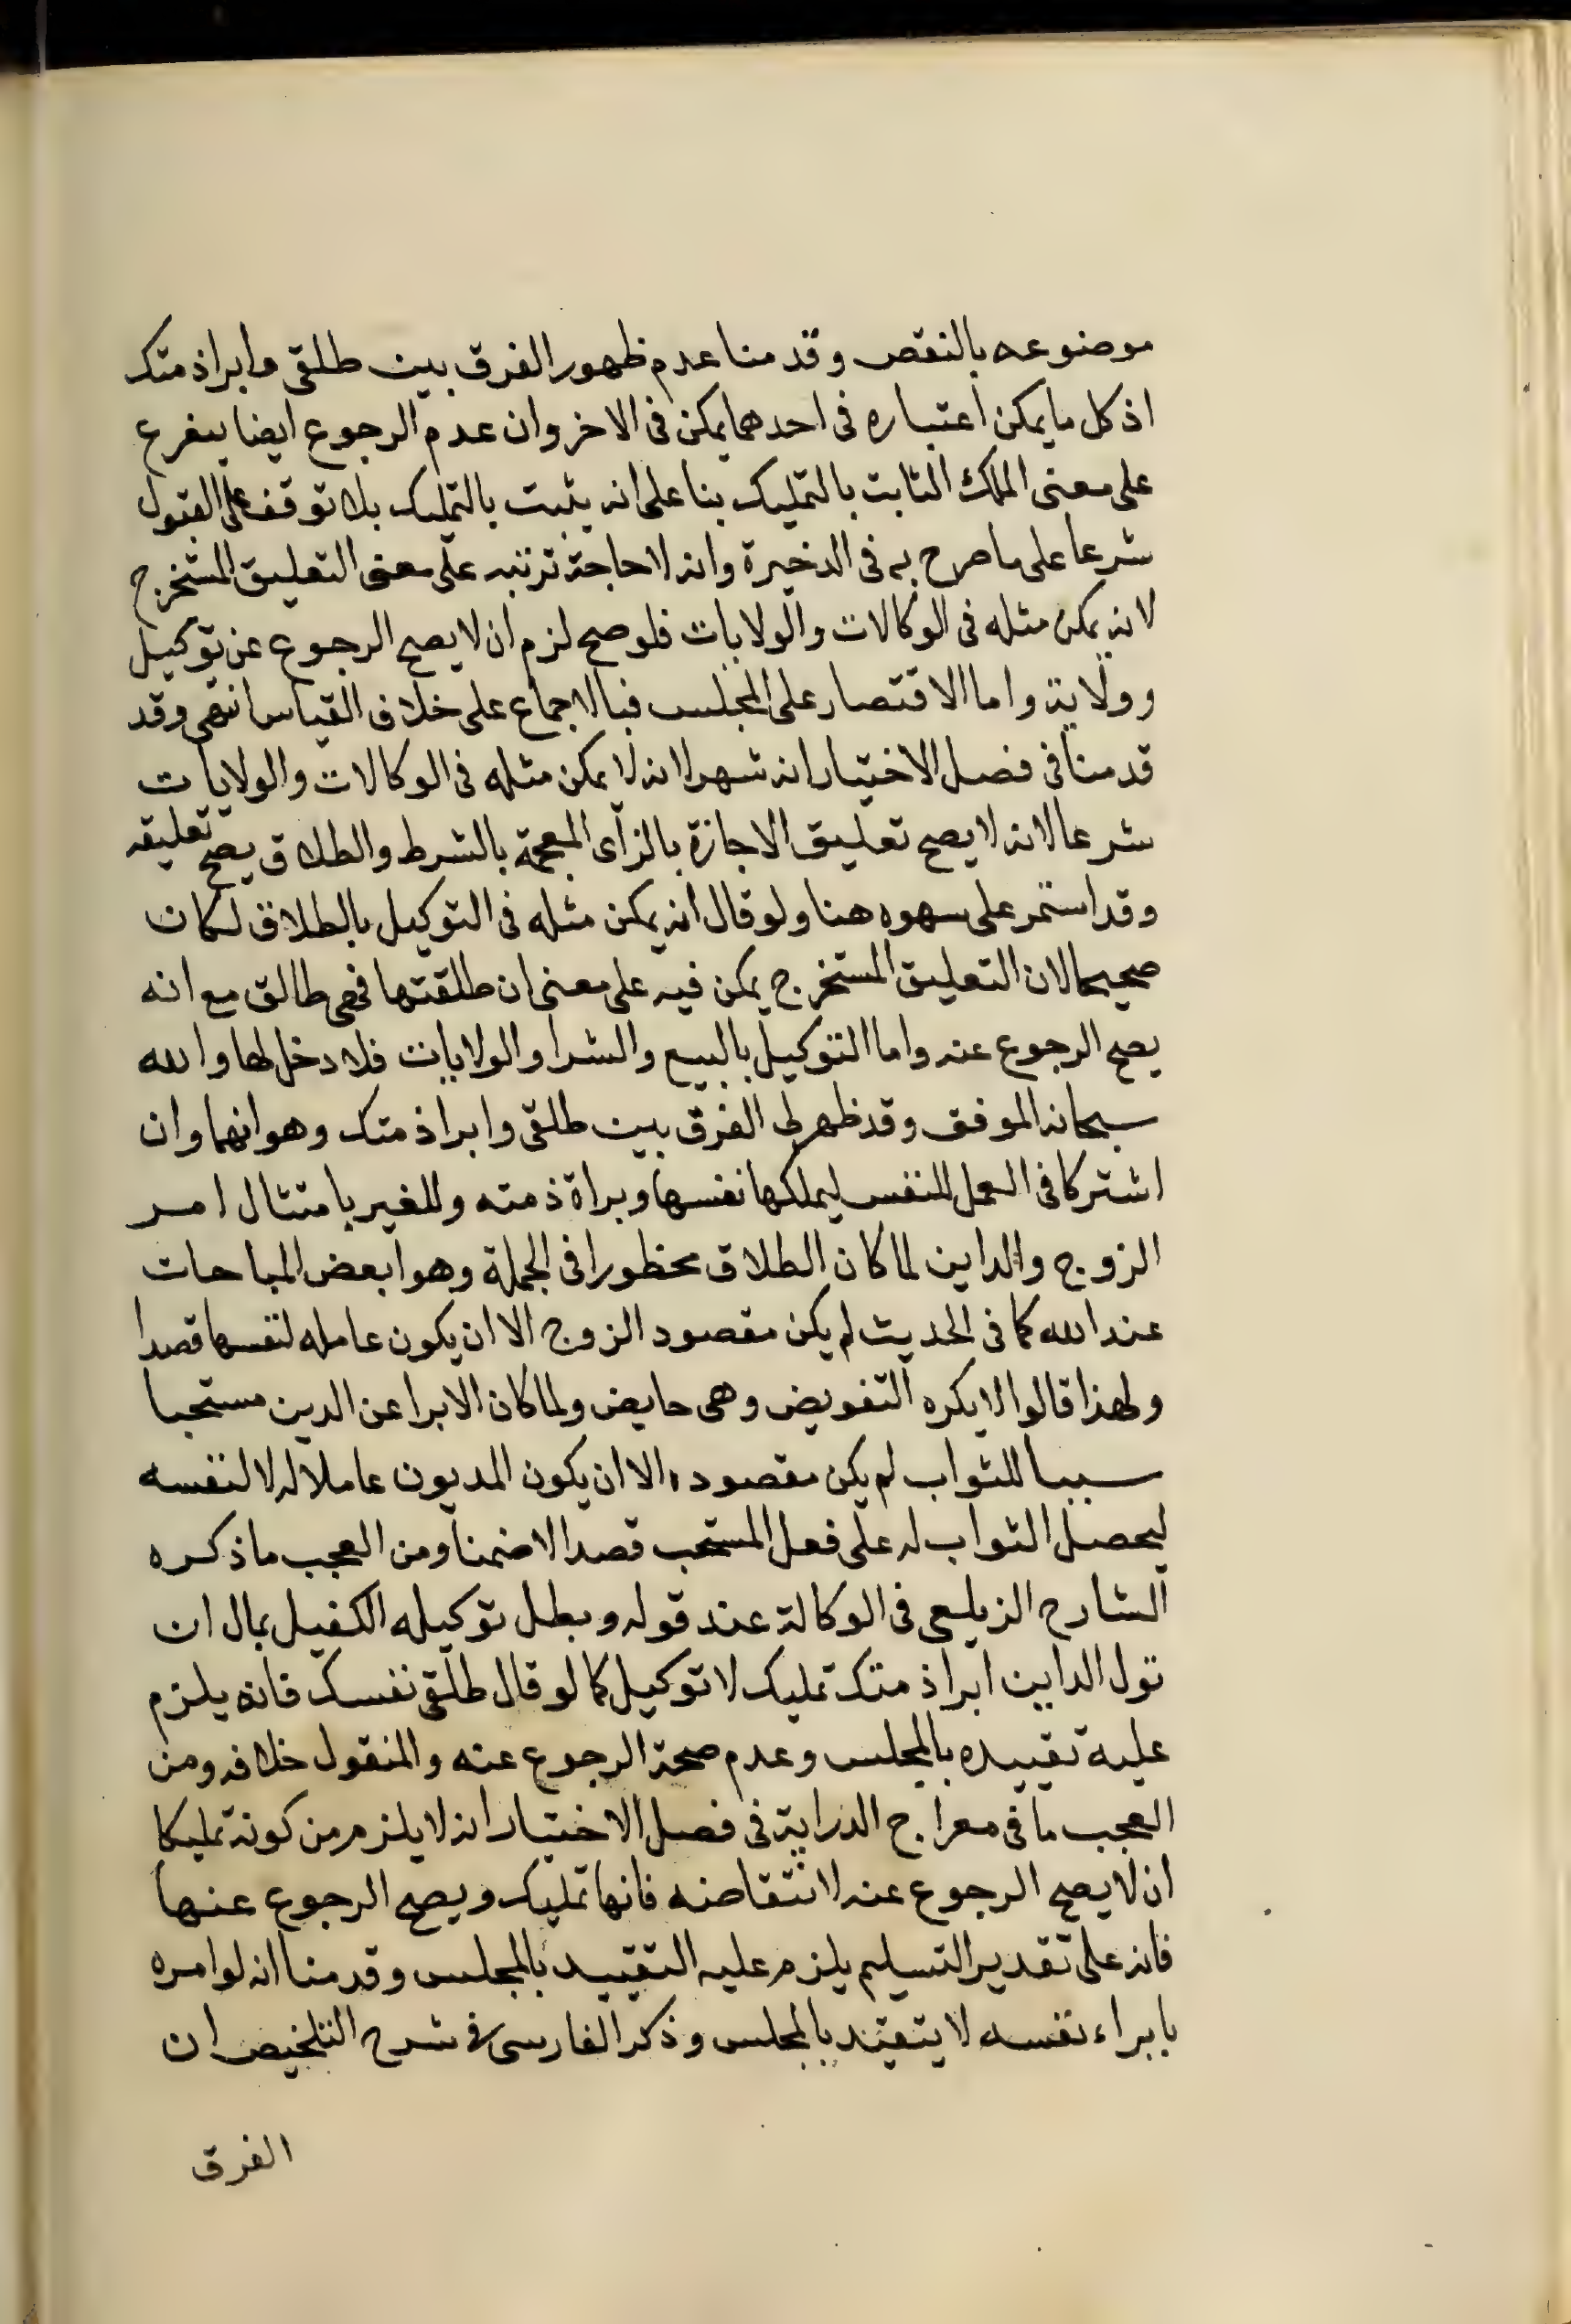 موضوعه بالنقض وقد منا عدم ظهور الفرق بين طلقى وابراذمتك
اذ كل ما يمكن اعتباره فى احدهما يمكن فى الاخر وان عدم الرجوع ايضا يبفرع
على معنى الملك الثابت بالتمليك بنا على انه يثبت بالتمليك بلا توقف على القبول
شرعا على ما صرح به فى الذخيرة وانه لا حاجة ترتبه على معنى التعليق المستخرج
لانه يمكن مثله فى الوكالات والولايات فلوصح لزم ان لا يصح الرجوع عن توكيل
وولاية واما الاقتصار على المجلس فبالاجماع على خلاف القياس انتهى وقد
قدمنا فى فصل الاختيار انه شهر لانه لا يمكن مثله فى الوكالات والولايات
شرعا لانه لا يصح تعليق الاجازة بالزاى المعجمة بالشرط والطلاق يصح تعليقه
وقد استمر على سهوه هنا ولو قال انه يمكن مثله فى التوكيل بالطلاق لكان
صحيحا لان التعليق المستخرج يمكن فيه على معنى ان طلقتها فهى طالق مع انه
يصح الرجوع عنه واما التوكيل بالبيع والشرا والولايات فلا دخل لها والله
سبحانه الموفق وقد ظهر لى الفرق بين طلقى وابراذمتك وهو انهما وان
اشتركا فى العمل للنفس ليملكها نفسها وبراة ذمته وللغير بامتثال امر
الزوج والداين لما كان الطلاق محظورا فى الجملة وهو ابعض المباحات
عند الله كما فى الحديث لم يكن مقصود الزوج الا ان يكون عامله لنفسها قصدا
ولهذا قالوا لا يكره التفويض وهى حايض ولما كان الابرا عن الدين مستحبا
سببا للثواب لم يكن مقصوده الا ان يكون المديون عاملا له لا لنفسه
ليحصل الثواب له على فعل المستحب قصدا لا ضمنا ومن العجب ما ذكره
الشارح الزيلعى فى الوكالة عند قوله وبطل توكيله الكفيل بمال ان
قول الداين ابراذمتك تمليك لا توكيل كما لو قال طلقى نفسك فانه يلزم
عليه تقييده بالمجلس وعدم صحة الرجوع عنه والمنقول خلافه ومن
العجب ما فى معراج الدراية فى فصل الاختيار انه لا يلزم من كونه تمليكا
ان لا يصح الرجوع عنه لانتقاضه فانها تمليك ويصح الرجوع عنها
فانه على تقدير التسليم يلزم عليه التقييد بالمجلس وقد منا انه لو امره
بابراء نفسه لا يتقيد بالمجلس وذكر الفارسى فى شرح التلخيص ان
الفرق